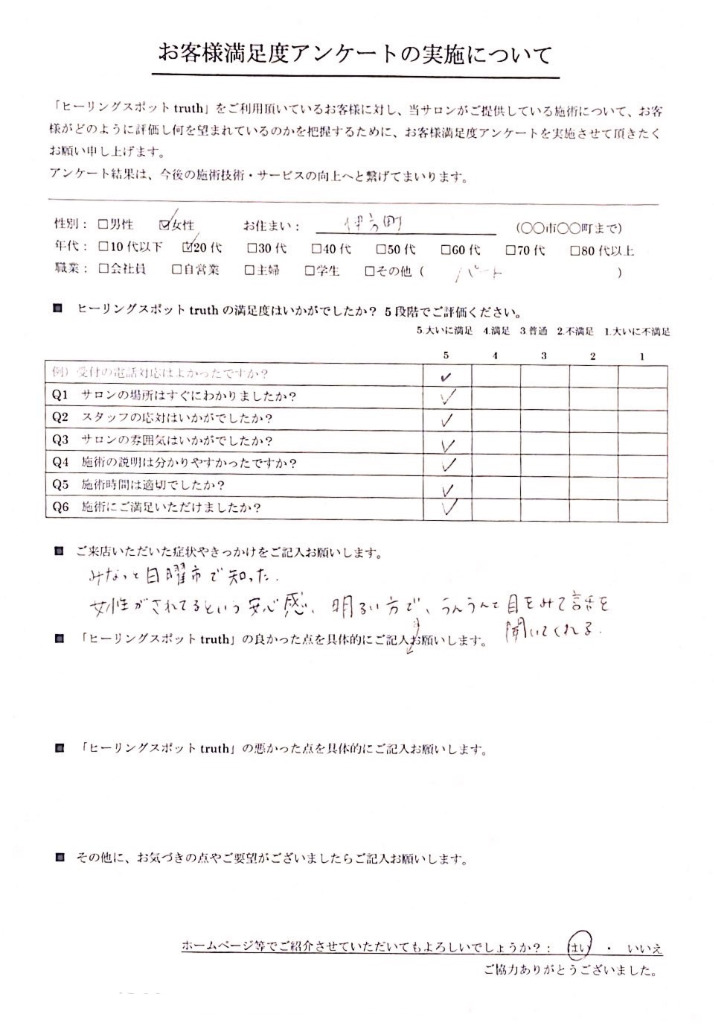 お客様満足度アンケートの実施について
「ヒーリングスポット truth」をご利用頂いているお客様に対し、当サロンがご提供している施術について、お客
様がどのように評価し何を望まれているのかを把握するために、お客様満足度アンケートを実施させて頂きたく
お願い申し上げます。
アンケート結果は、今後の施術技術・サービスの向上へと繋げてまいります。
性別：□男性 ☑女性 お住まい： 伊方町 (〇〇市〇〇町まで)
年代：□10代以下 ☑20代 □30代 □40代 □50代 □60代 □70代 □80代以上
職業：□会社員 □自営業 □主婦 □学生 □その他 ( パート )
■ ヒーリングスポット truth の満足度はいかがでしたか？ 5段階でご評価ください。
5.大いに満足 4.満足 3.普通 2.不満足 1.大いに不満足
5 4 3 2 1
例）受付の電話対応はよかったですか？ ✓
Q1 サロンの場所はすぐにわかりましたか？ ✓
Q2 スタッフの応対はいかがでしたか？ ✓
Q3 サロンの雰囲気はいかがでしたか？ ✓
Q4 施術の説明は分かりやすかったですか？ ✓
Q5 施術時間は適切でしたか？ ✓
Q6 施術にご満足いただけましたか？ ✓
■ ご来店いただいた症状やきっかけをご記入お願いします。
みなっと日曜市で知った.
女性がされてるという安心感、明るい方で、うんうんて目をみて話を
聞いてくれる.
■ 「ヒーリングスポット truth」の良かった点を具体的にご記入お願いします。
■ 「ヒーリングスポット truth」の悪かった点を具体的にご記入お願いします。
■ その他に、お気づきの点やご要望がございましたらご記入お願いします。
ホームページ等でご紹介させていただいてもよろしいでしょうか？： はい ・ いいえ
ご協力ありがとうございました。